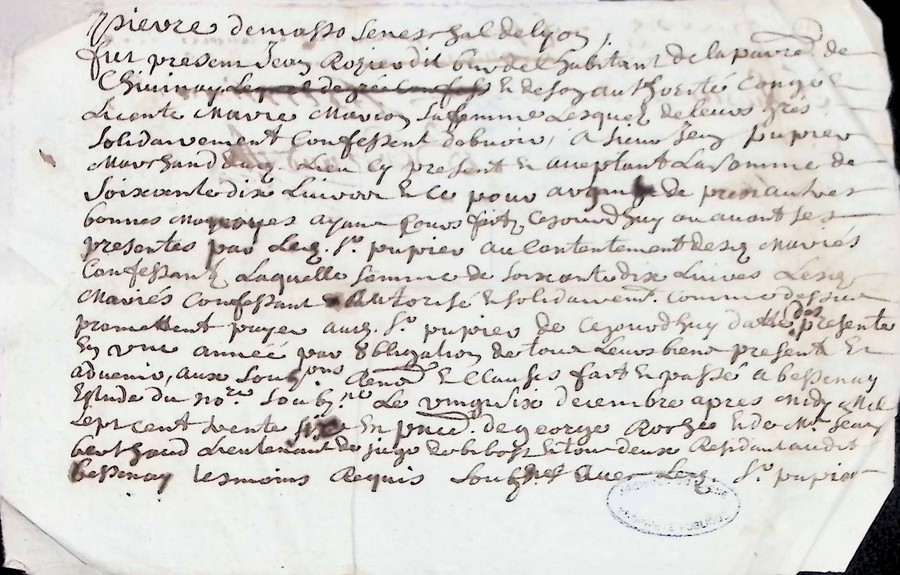 pierre demasso seneschal de lyon,
fut present Jean Rozier dit habitant de la parre de
Chivinay Lequel de gré Confesse & de son authorité Congé &
Licente Marie Marion sa femme Lesquez de leurs grés
solidairement Confessent debvoir, A sieur Jean pupier
Marchand dud. Lieu cy present & acceptant La somme de
Soixante dix Livres & Ce pour argent de prest autres
bonnes Moyes ayant Cejourdhuy ou avant Ses
presentes par Led. Sr. pupier au Contentement desd Mariés
Confessans Laquelle somme de soixante dix Livres Lesd
Mariés Confessant Autorisé & solidairemt. comme dessus
promettent payer aud. Sr. pupier de Cejourdhuy datte des presente
En une année par obligation de tous Leurs biens present &
advenir, aux Soubmons Renons & Clauses fait & passé a bessenay
Estude du nore. Soubne Le vingt six decembre apres Midy Mil
sept cent trente six En pnce. de george Rozier & de Me Jean
berthaud Lieutenant de juge de ribost & tous deux Residant audit
bessenay tesmoins Requis Soubnes Avec Led. Sr. pupier